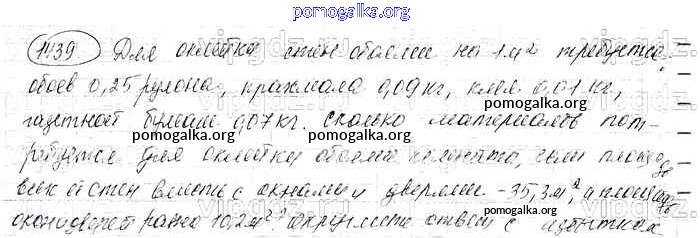 pomogalka.org
1439 Для оклейки стен обоями на 1 м² требуется
обоев 0,25 рулона, крахмала 0,09 кг, клея 0,01 кг,
pomogalka.org
газетной бумаги 0,07 кг. сколько материалов пот-
pomogalka.org pomogalka.org
ребуется для оклейки обоями комнаты, если площадь
всех стен вместе с окнами и дверями - 35,3 м², а площадь
pomogalka.org pomogalka.org
окон и дверей равна 10,2 м²? Округлите ответ с избытком